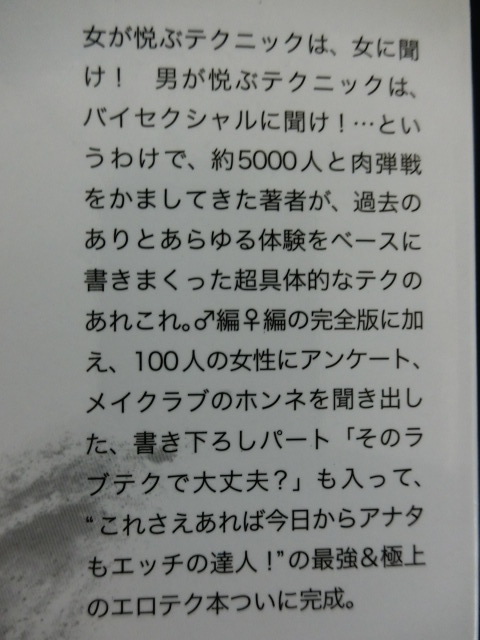 女が悦ぶテクニックは、女に聞
け！　男が悦ぶテクニックは、
バイセクシャルに聞け！…とい
うわけで、約5000人と肉弾戦
をかましてきた著者が、過去の
ありとあらゆる体験をベースに
書きまくった超具体的なテクの
あれこれ。♂編♀編の完全版に加
え、100人の女性にアンケート、
メイクラブのホンネを聞き出し
た、書き下ろしパート「そのラ
ブテクで大丈夫？」も入って、
“これさえあれば今日からアナタ
もエッチの達人！”の最強&極上
のエロテク本ついに完成。